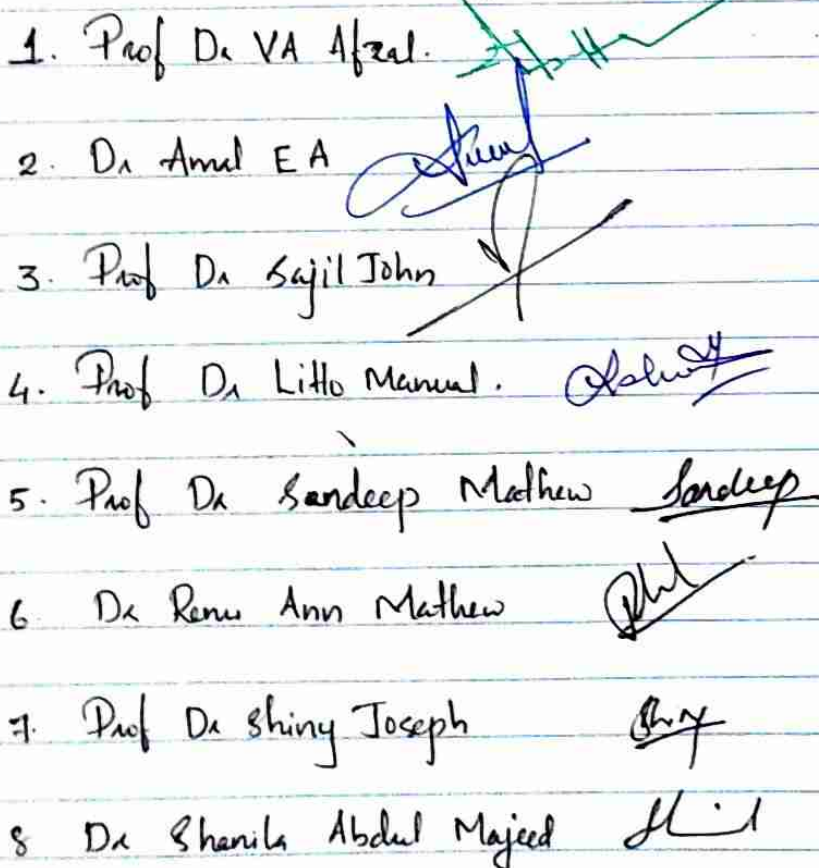 1. Prof Dr VA Afzal.
2. Dr Amal E A
3. Prof Dr Sajil John
4. Prof Dr Litto Manual.
5. Prof Dr Sandeep Mathew Sandeep
6. Dr Renu Ann Mathew
7. Prof Dr Shiny Joseph Shiny
8 Dr Shanila Abdul Majeed